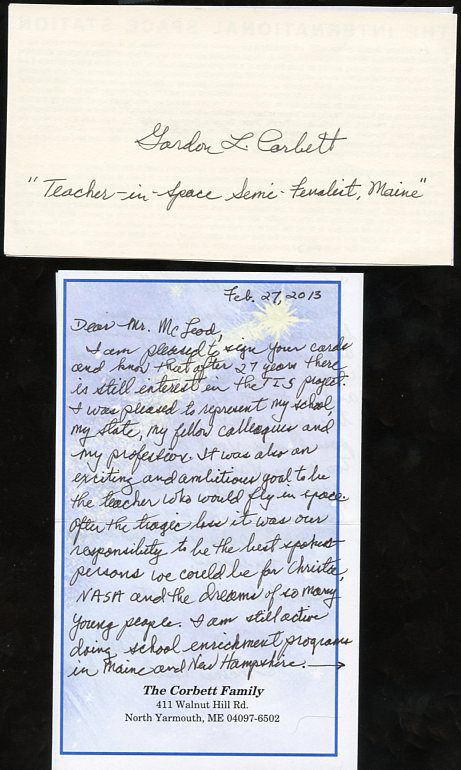 Gordon L. Corbett
"Teacher-in-Space Semi-Finalist, Maine"
Feb. 27, 2013
Dear Mr. McLeod,
I am pleased to sign your cards
and know that after 27 years there
is still interest in the TIS project.
I was pleased to represent my school,
my state, my fellow colleagues and
my profession. It was also an
exciting and ambitious goal to be
the teacher who would fly in space.
After the tragic loss it was our
responsibility to be the best spokes
persons we could be for Christa,
NASA and the dreams of so many
young people. I am still active
doing school enrichment programs
in Maine and New Hampshire. →
The Corbett Family
411 Walnut Hill Rd.
North Yarmouth, ME 04097-6502